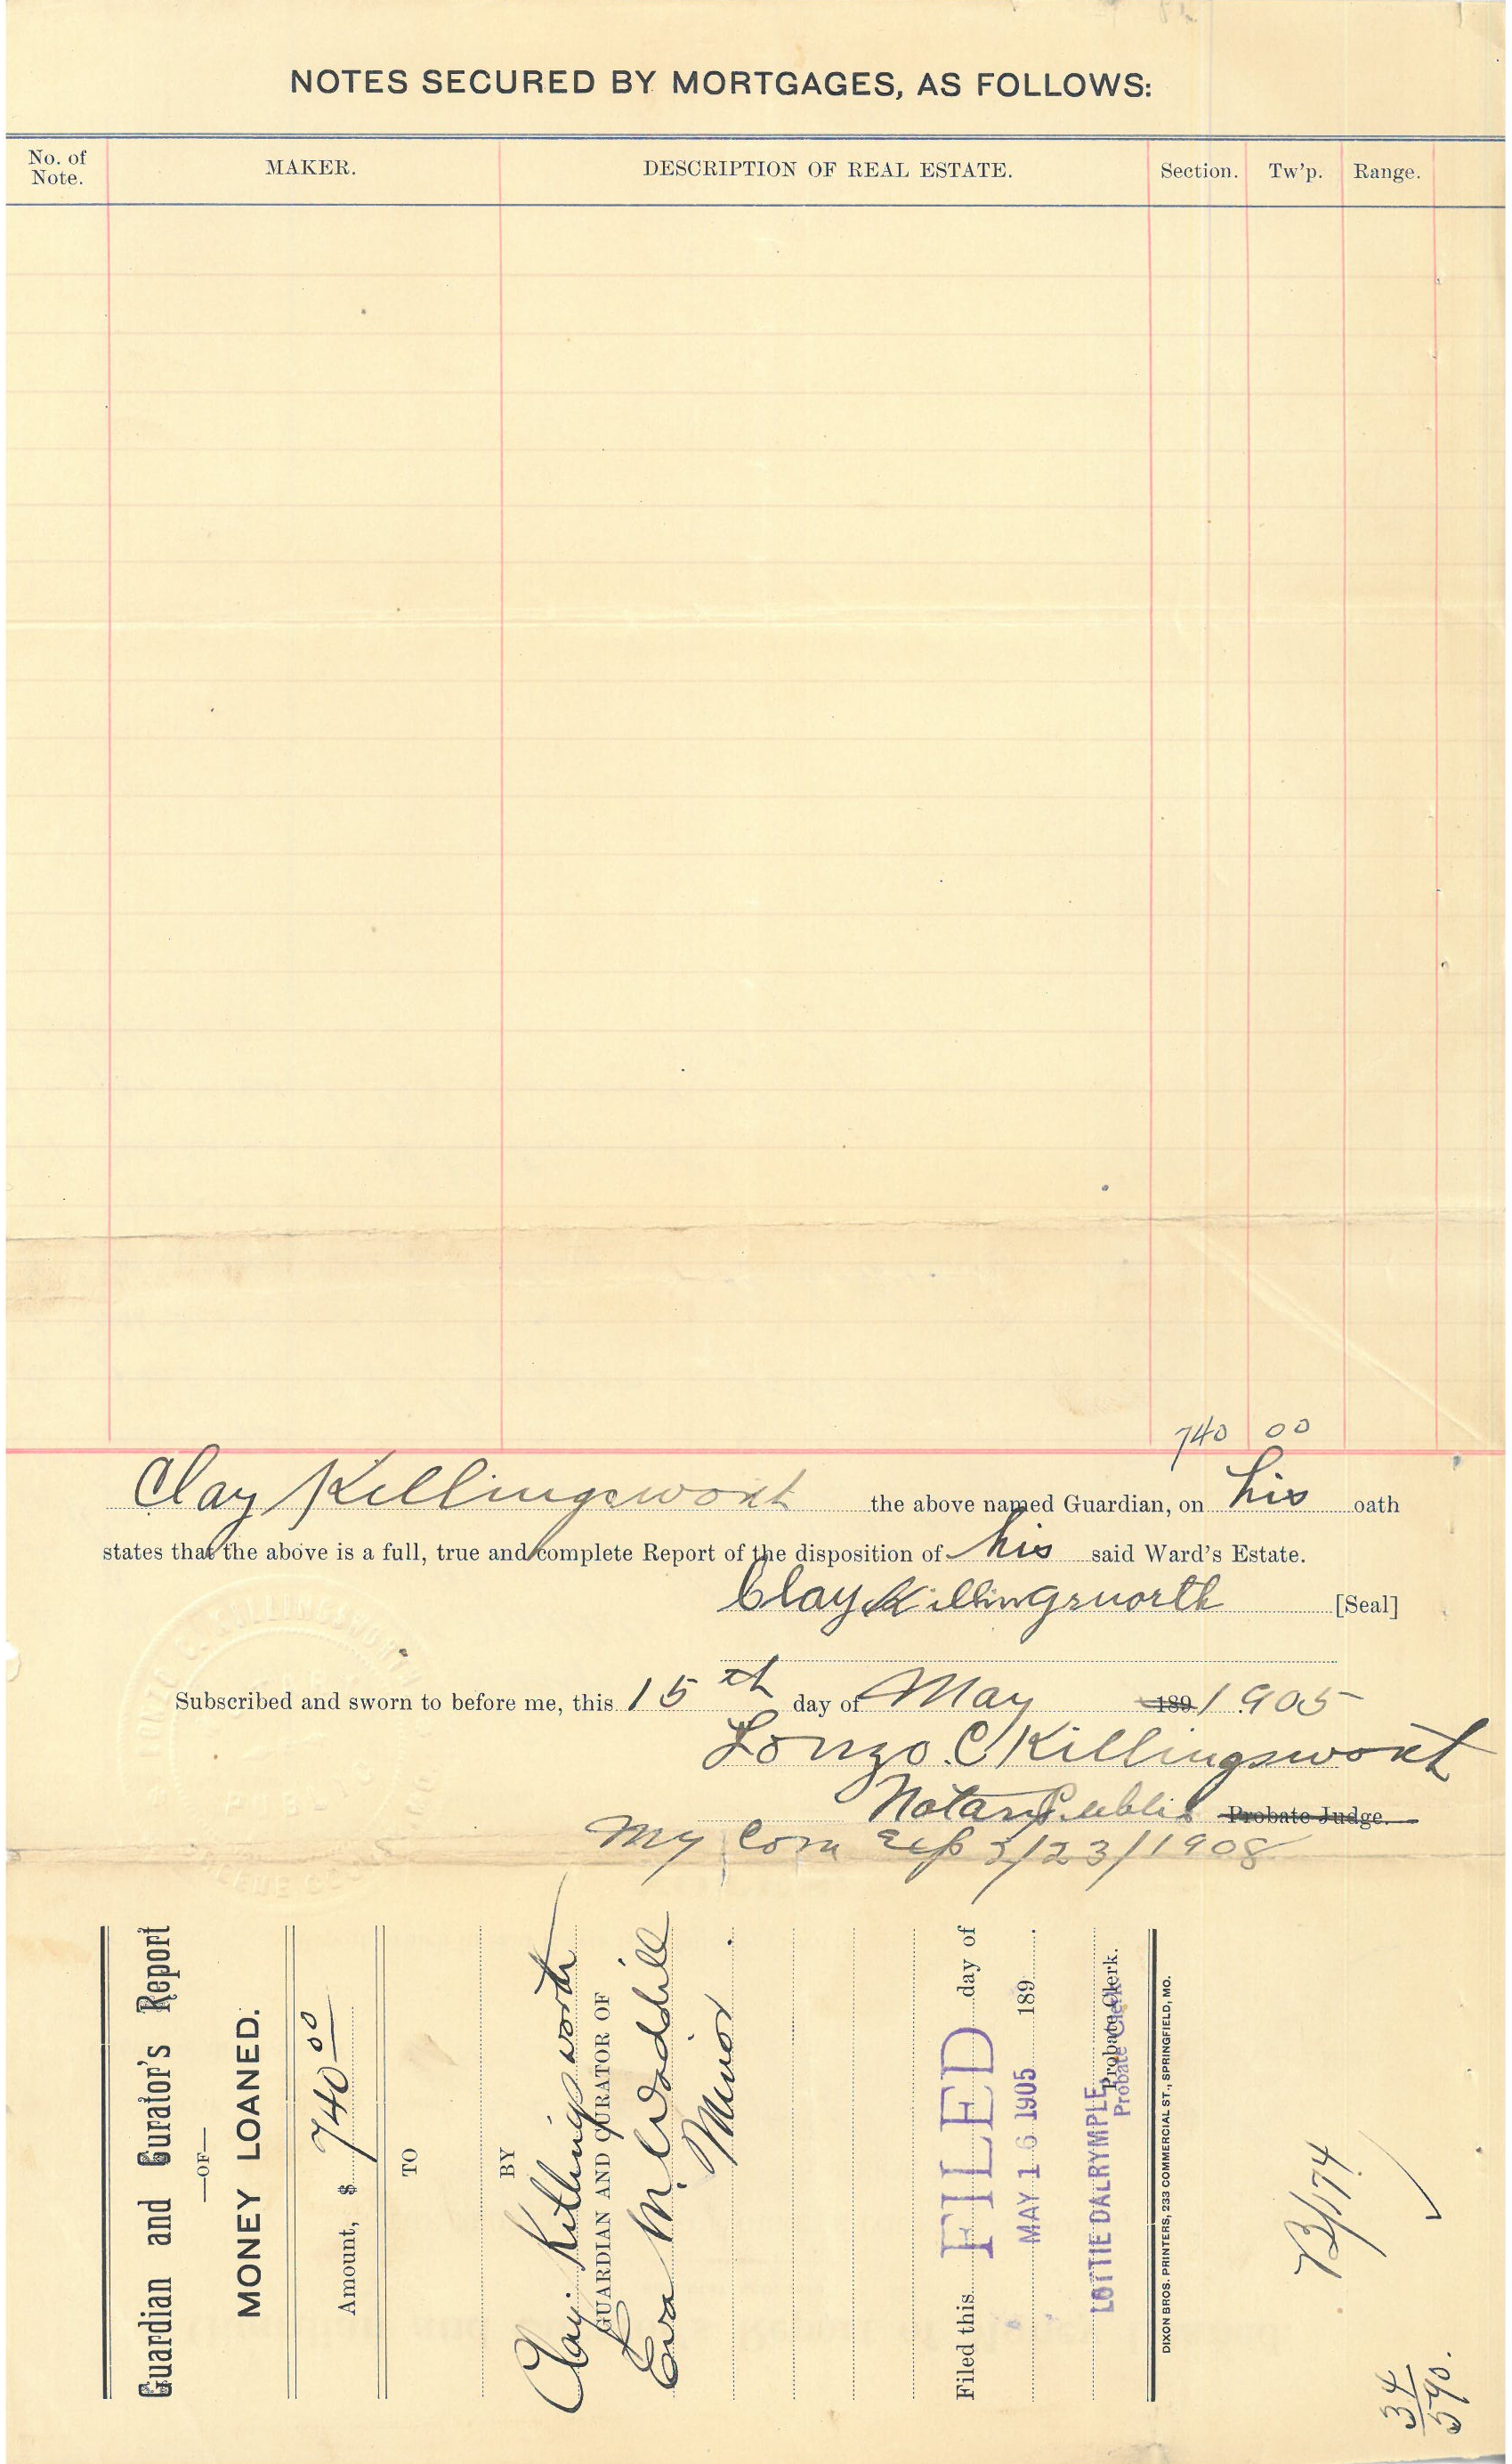 NOTES SECURED BY MORTGAGES, AS FOLLOWS:
No. of Note. MAKER. DESCRIPTION OF REAL ESTATE. Section. Tw'p. Range.
740 00
Clay Killingsworth the above named Guardian, on his oath
states that the above is a full, true and complete Report of the disposition of his said Ward's Estate.
Clay Killingsworth [Seal]
Subscribed and sworn to before me, this 15th day of May 189 1905
Lonzo C Killingsworth
Notary Public Probate Judge.
My Com Exp 3/23/1908
Guardian and Curator's Report
—OF—
MONEY LOANED.
Amount, $ 740 00
TO
BY
Clay Killingsworth
GUARDIAN AND CURATOR OF
Eva M. Waddill
Minor.
Filed this FILED day of
MAY 16 1905 189 .
LOTTIE DALRYMPLE, Probate Clerk.
Probate Clerk
DIXON BROS. PRINTERS, 233 COMMERCIAL ST., SPRINGFIELD, MO.
B/174
34
590.